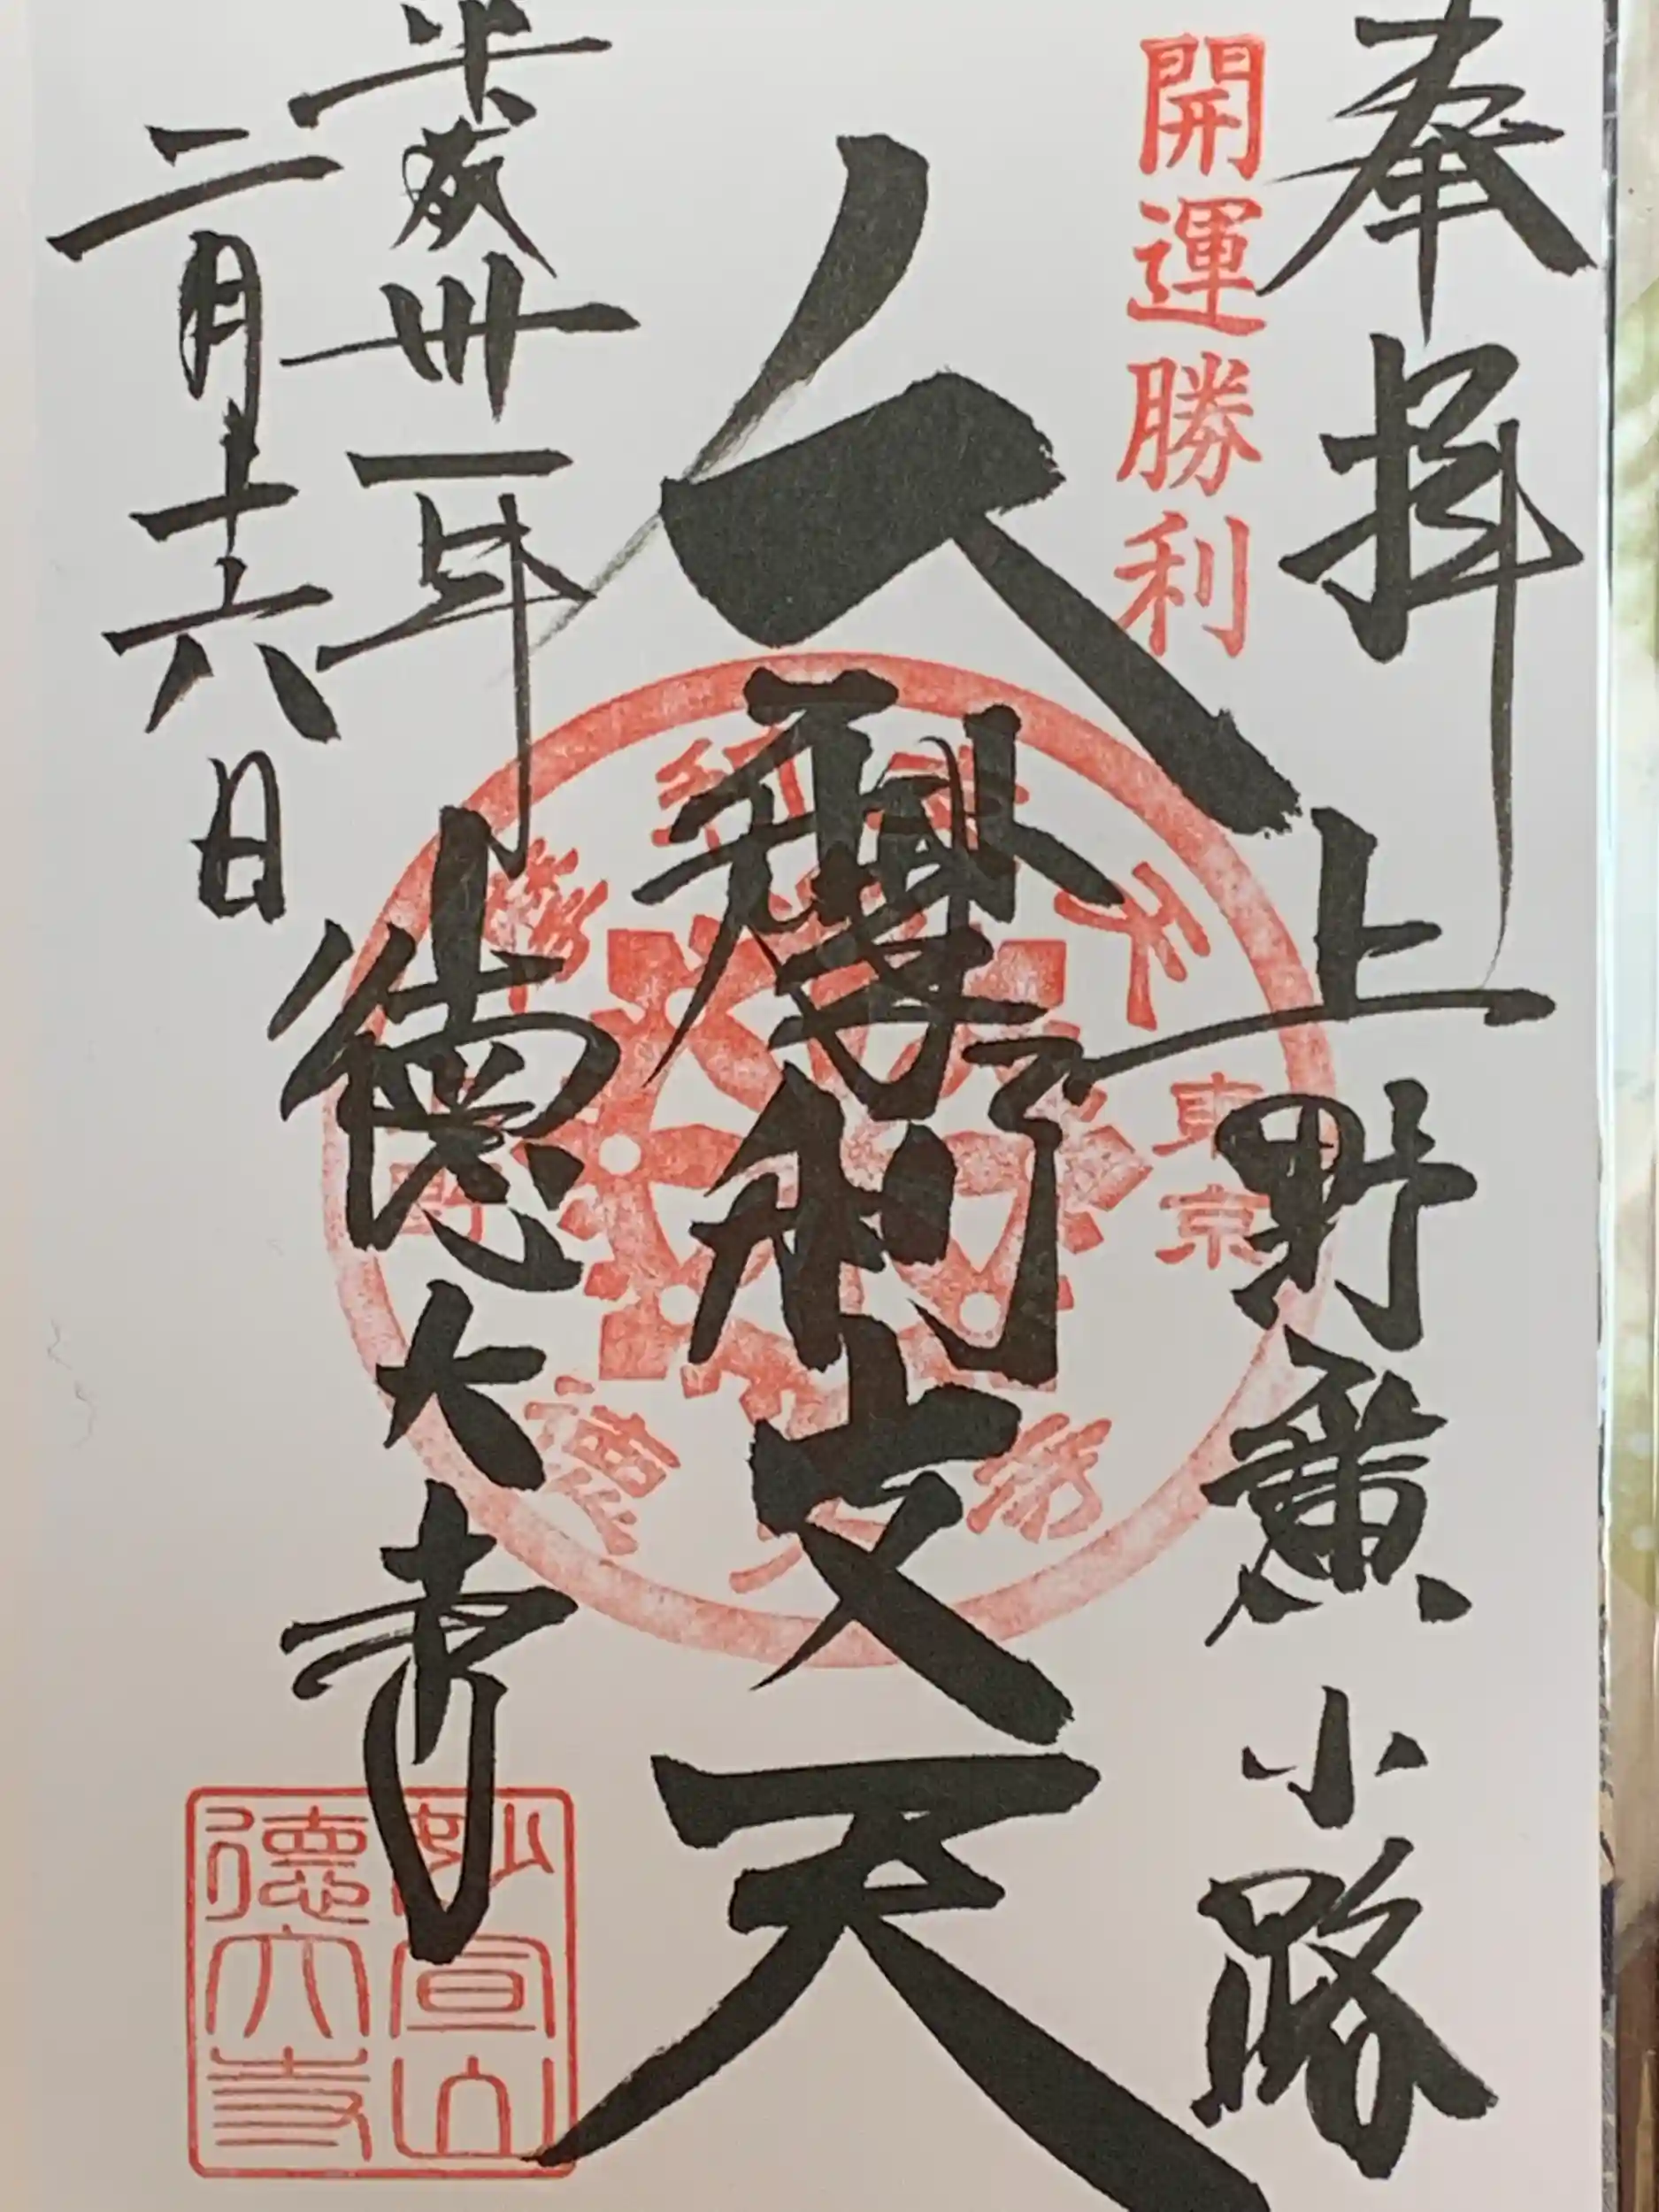 奉拝
上野廣小路
開運勝利
大摩利支天
平成卅一年
二月十六日
徳大寺
東京
妙宣山
徳大寺